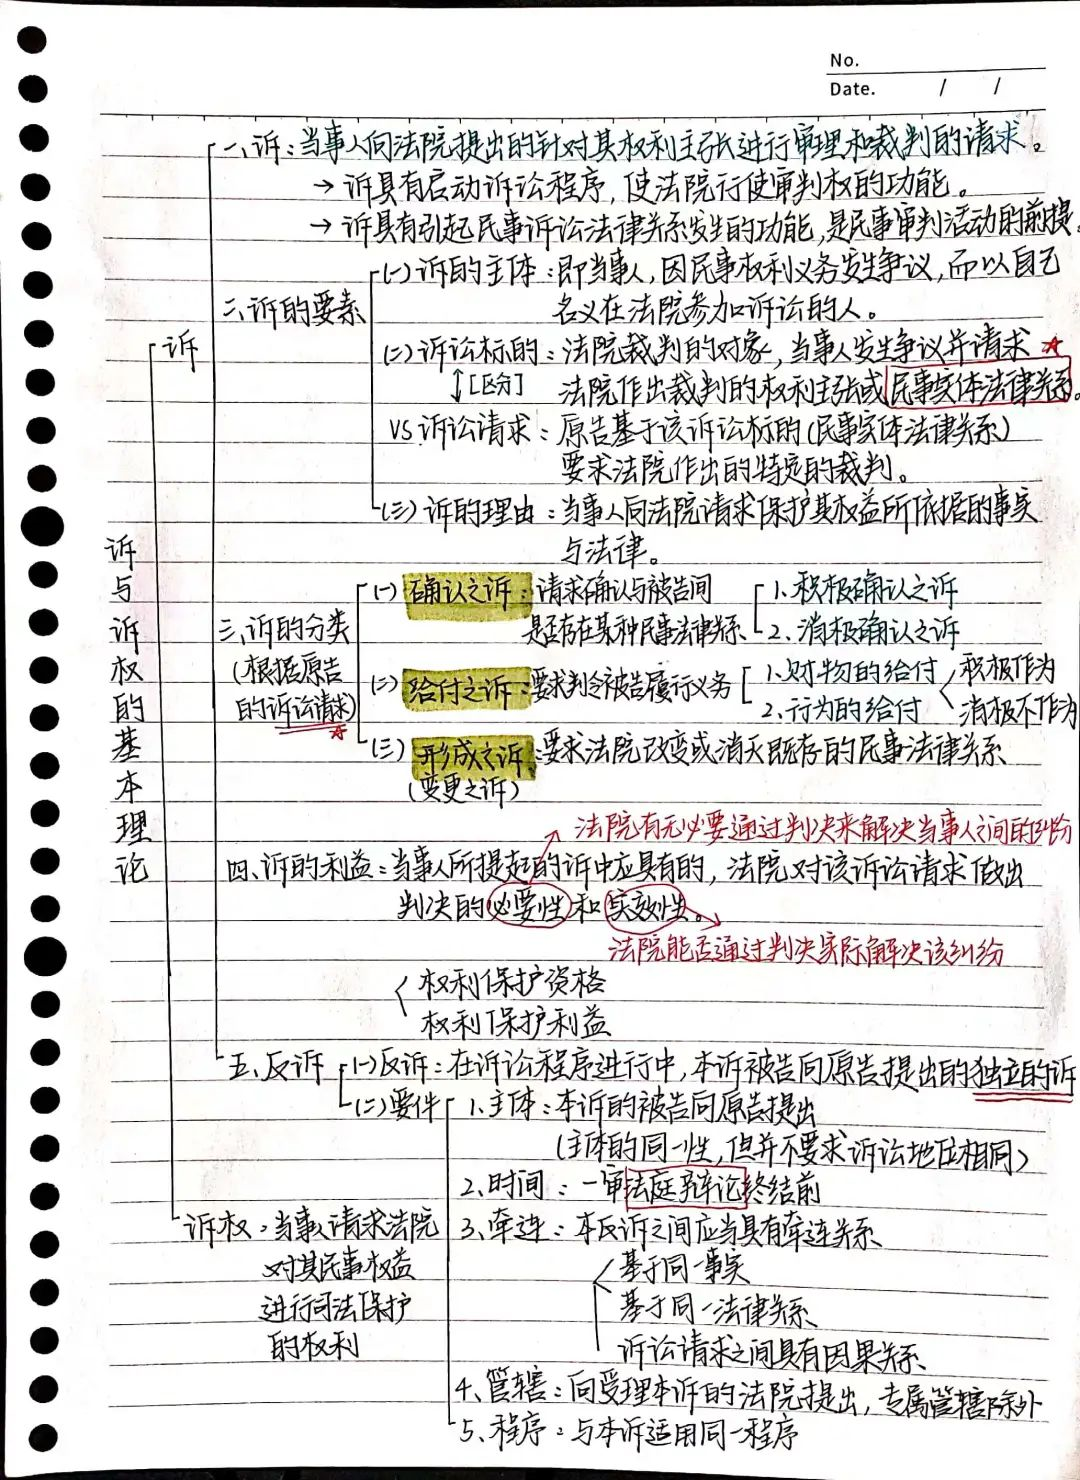 No.
Date. / /
一、诉：当事人向法院提出的针对其权利主张进行审理和裁判的请求。
→ 诉具有启动诉讼程序，使法院行使审判权的功能。
→ 诉具有引起民事诉讼法律关系发生的功能，是民事审判活动的前提。
二、诉的要素
(一)诉的主体：即当事人，因民事权利义务发生争议，而以自己
名义在法院参加诉讼的人。
诉
(二)诉讼标的：法院裁判的对象，当事人发生争议并请求
↕[区分]
法院作出裁判的权利主张或民事实体法律关系。
VS.诉讼请求：原告基于该诉讼标的(民事实体法律关系)
要求法院作出的特定的裁判。
(三)诉的理由：当事人向法院请求保护其权益所依据的事实
与法律。
诉与诉权的基本理论
三、诉的分类
(根据原告
的诉讼请求)
(一)确认之诉：请求确认与被告间
是否存在某种民事法律关系
1.积极确认之诉
2.消极确认之诉
(二)给付之诉：要求判令被告履行义务
1.财物的给付
2.行为的给付
积极作为
消极不作为
(三)形成之诉：要求法院改变或消灭既存的民事法律关系
(变更之诉)
法院有无必要通过判决来解决当事人之间的纠纷
四、诉的利益：当事人所提起的诉中应具有的，法院对该诉讼请求做出
判决的必要性和实效性。
法院能否通过判决实际解决该纠纷
权利保护资格
权利保护利益
五、反诉
(一)反诉：在诉讼程序进行中，本诉被告向原告提出的独立的诉
(二)要件
1.主体：本诉的被告向原告提出
(主体的同一性，但并不要求诉讼地位相同)
2.时间：一审法庭辩论终结前
诉权：当事人请求法院
对其民事权益
进行司法保护
的权利
3.牵连：本反诉之间应当具有牵连关系
基于同一事实
基于同一法律关系
诉讼请求之间具有因果关系
4.管辖：向受理本诉的法院提出，专属管辖除外
5.程序：与本诉适用同一程序